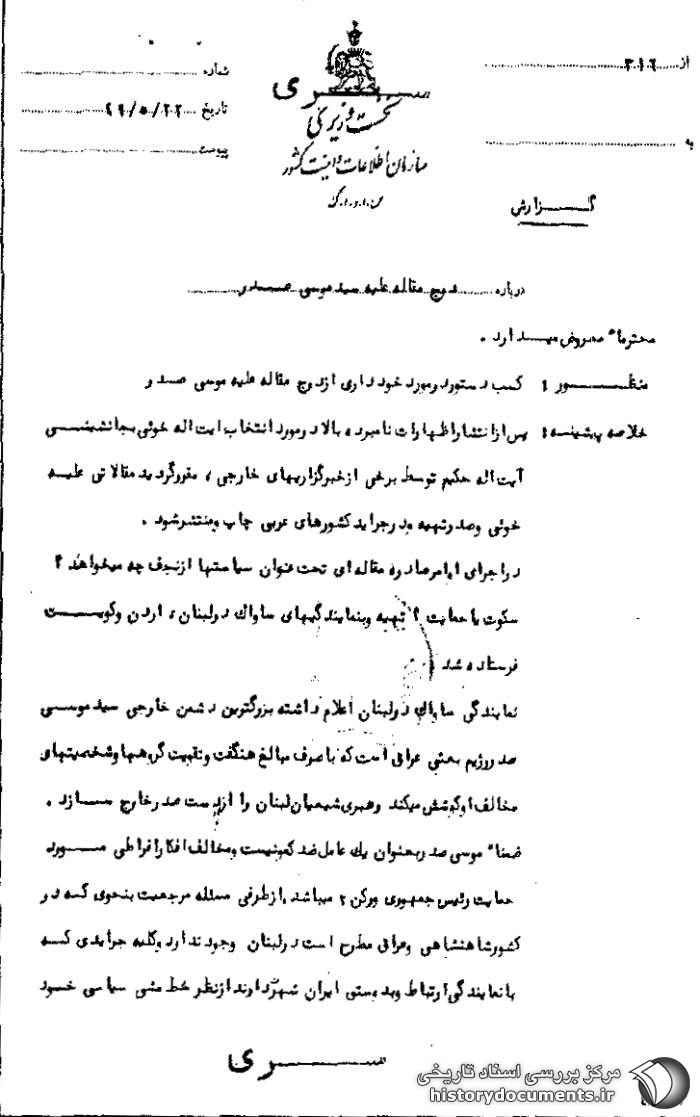 از ۳۱۲
شماره
سری
نخست وزیری
تاریخ ۴۹/۵/۲۲
به
سازمان اطلاعات و امنیت کشور
پیوست
س.ا.و.ا.ک
گزارش
درباره درج مقاله علیه سیدموسی صدر
محترما" معروض میدارد .
منظور : کسب دستور در مورد خودداری از درج مقاله علیه موسی صدر
خلاصه پیشینه : پس از انتشار اظهارات نامبرده بالا در مورد انتخاب ایت اله خوئی بجانشینی
آیت اله حکیم توسط برخی از خبرگزاریهای خارجی ، مقرر گردید مقالاتی علیه
خوئی و صدر تهیه و در جراید کشورهای عربی چاپ و منتشر شود .
در اجرای اوامر صادره مقاله ای تحت عنوان سیاستها از نجف چه میخواهند ؟
سکوت یا حمایت ؟ تهیه و بنمایندگیهای ساواک در لبنان ، اردن و کویت
فرستاده شد
نمایندگی ساواک در لبنان اعلام داشته بزرگترین دشمن خارجی سیدموسی
صدر رژیم بعثی عراق است که با صرف مبالغ هنگفت و تقویت گروهها و شخصیتهای
مخالف او کوشش میکند رهبری شیعیان لبنان را از دست صدر خارج سازد .
ضمنا" موسی صدر بعنوان یک عامل ضد کمونیست و مخالف افکار افراطی مورد
حمایت رئیس جمهوری و رکن ۲ میباشد . از طرفی مسئله مرجعیت بنحوی که در
کشور شاهنشاهی و عراق مطرح است در لبنان وجود ندارد و کلیه جرایدی که
با نمایندگی ارتباط و بدوستی ایران شهرت دارند از نظر خط مشی سیاسی خود
سری
مرکز بررسی اسناد تاریخی
historydocuments.ir